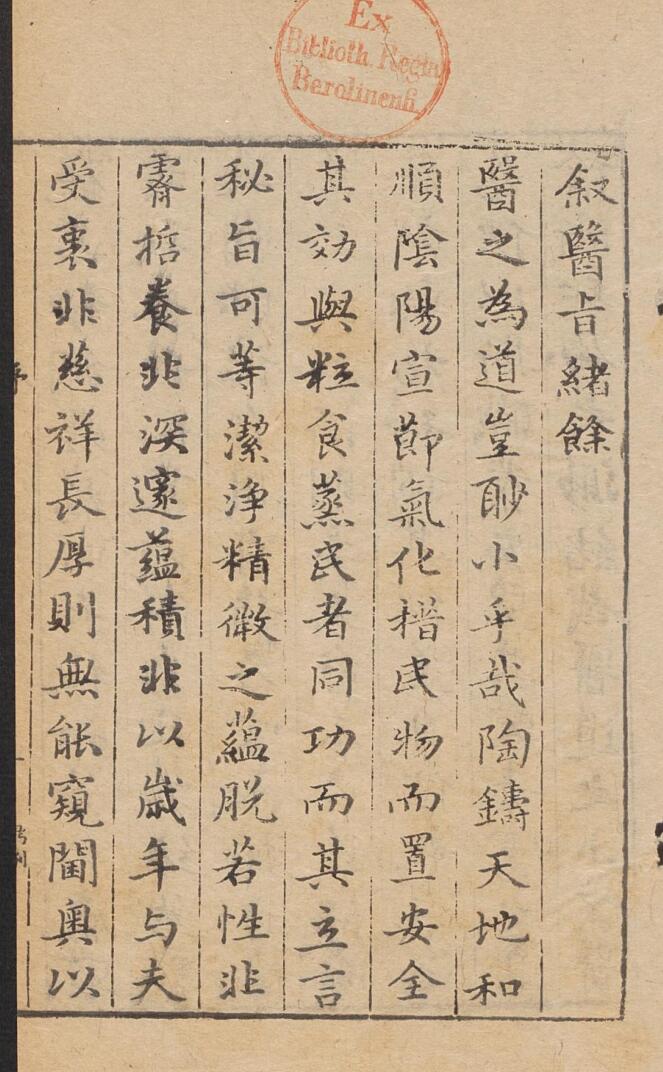 Ex
Biblioth. Regia
Berolinensi.
叙醫旨緒餘
醫之為道豈眇小乎哉陶鑄天地和
順陰陽宣節氣化榰民物而置安全
其効與粒食蒸民者同功而其立言
秘旨可等潔淨精微之蘊脱若性非
睿哲養非深邃蘊積非以歲年与夫
受裏非慈祥長厚則無能窺閫奥以